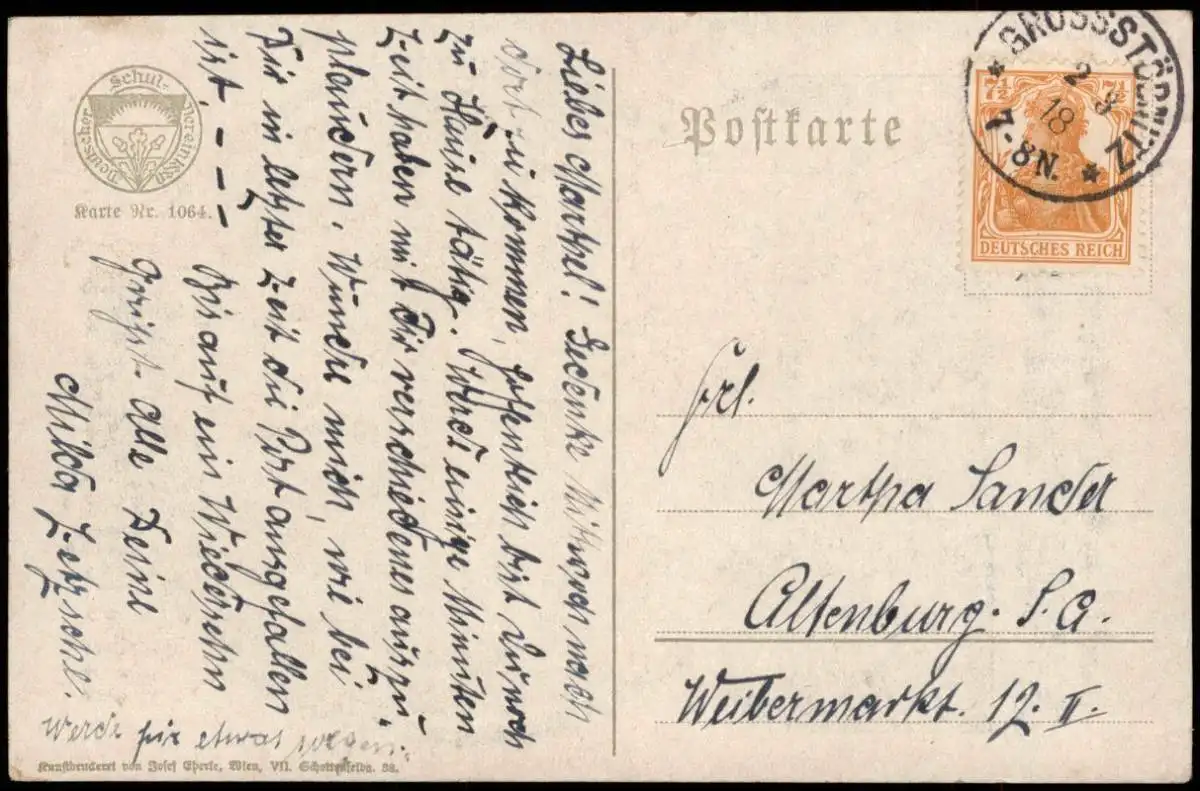 Deutscher Schul-Verein 1880
Karte Nr. 1064.
Postkarte
GROSSSTÖBNITZ
2 3
18
7-8N.
7½ 7½
DEUTSCHES REICH
Liebes Marthel! Gedenke Mittwoch nach
dort zu kommen, hoffentlich bist Du noch
zu Hause tätig. Werde einige Minuten
Zeit haben mit Dir verschiedenes auszu
plaudern. Wundre mich, wie bei
Dir in letzter Zeit die Post ausgefallen
ist, - - -
Bis auf ein Wiedersehn
grüßt alle Deine
Milda Zetzsche.
Werde für etwas sorgen.
Frl.
Martha Sander
Altenburg. S. A.
Weibermarkt. 12. II.
Kunstdruckerei von Josef Eberle, Wien, VII. Schottenfeldg. 38.